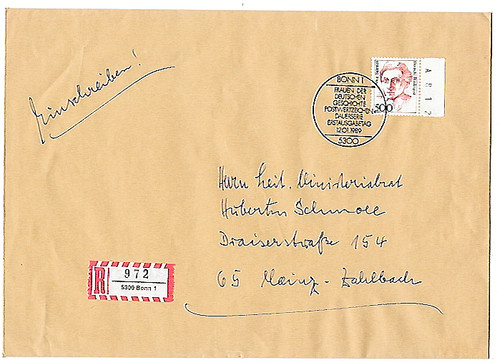 Einschreiben!
BONN 1
FRAUEN DER
DEUTSCHEN
GESCHICHTE
POSTWERTZEICHEN-
DAUERSERIE
ERSTAUSGABETAG
12.01.1989
5300
500
A 8 1 2
Herrn Leit. Ministerialrat
Hubertus Schmoll
Draiserstraße 154
65 Mainz-Zahlbach
R
972
5300 Bonn 1